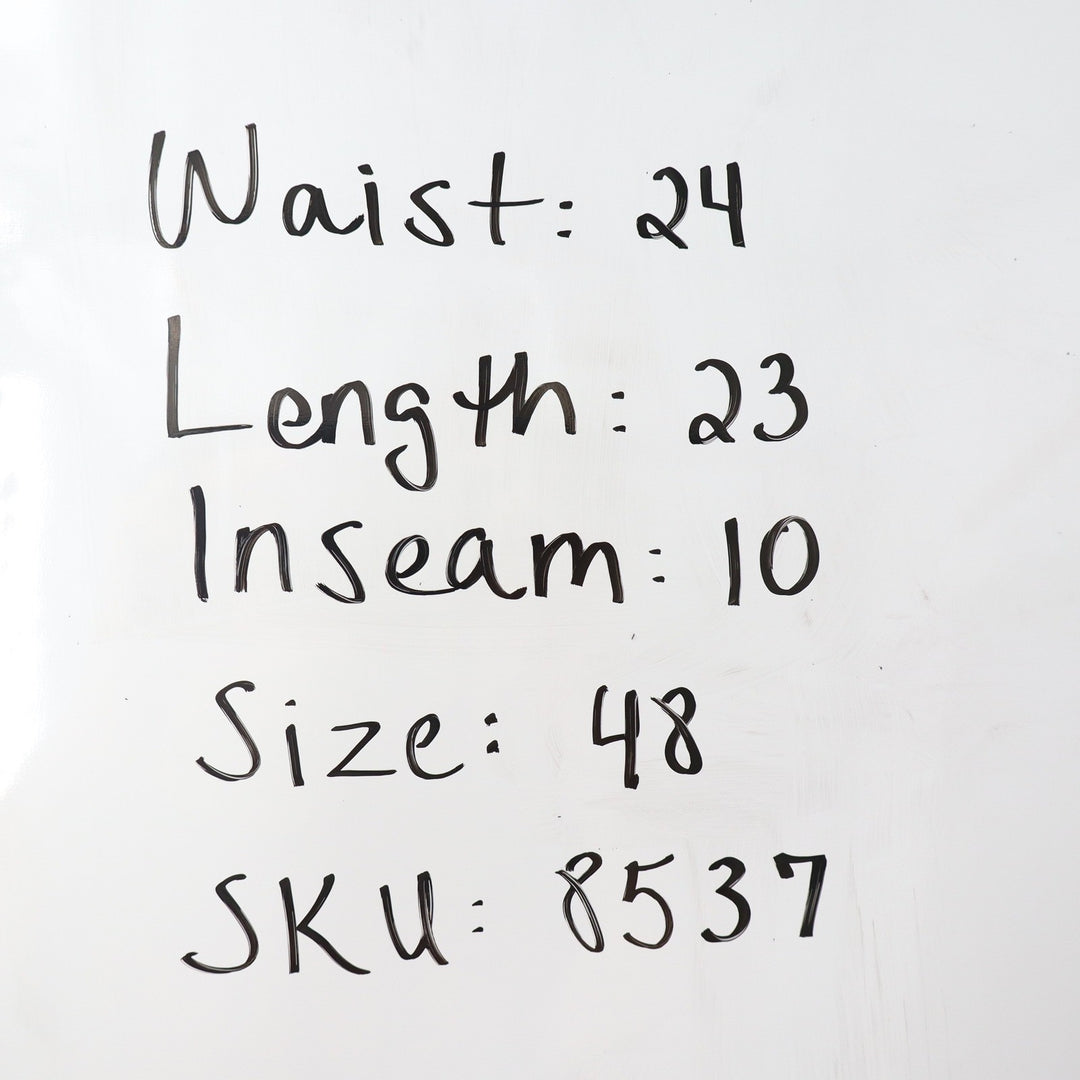 Waist: 24
Length: 23
Inseam: 10
Size: 48
SKU: 8537